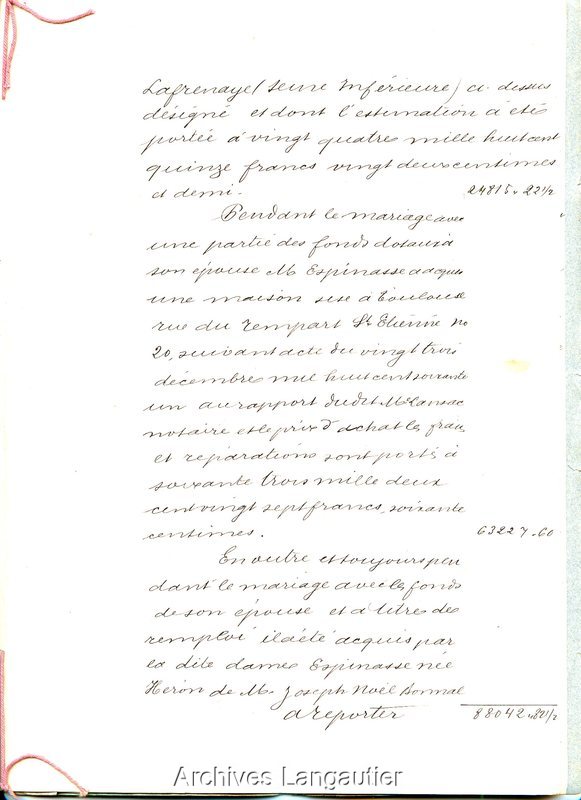 Lafrenaye (Seine Inférieure) ci-dessus
désigné et dont l'estimation a été
portée à vingt quatre mille huit cent
quinze francs vingt deux centimes
et demi. 24815 " 22 1/2
Pendant le mariage avec
une partie des fonds dotaux à
son épouse M. Espinasse a acquis
une maison sise à Toulouse
rue du rempart St Etienne no
20, suivant acte du vingt trois
décembre mil huit cent soixante
un au rapport dudit Me Lansac
notaire et le prix d'achat les frais
et réparations sont portés à
soixante trois mille deux
cent vingt sept francs, soixante
centimes. 63227.60
En outre et toujours pen
dant le mariage avec les fonds
de son épouse et à titre de
remploi il a été acquis par
la dite dame Espinasse née
Héron de M. Joseph Noël Bonnal
à reporter 88042 " 82 1/2
Archives Langautier